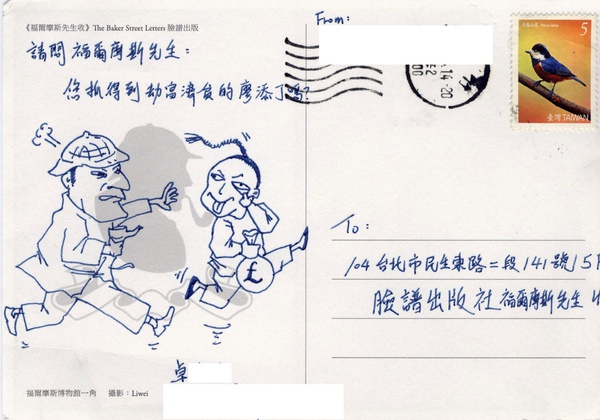 《福爾摩斯先生收》The Baker Street Letters 臉譜出版
請問 福爾摩斯先生:
您抓得到劫富濟貧的廖添丁嗎?
£
卓
福爾摩斯博物館一角 攝影:Liwei
From:
14.-20
5
臺灣 TAIWAN
To:
104 台北市民生東路二段 141 號 5F
臉譜出版社 福爾摩斯先生 收